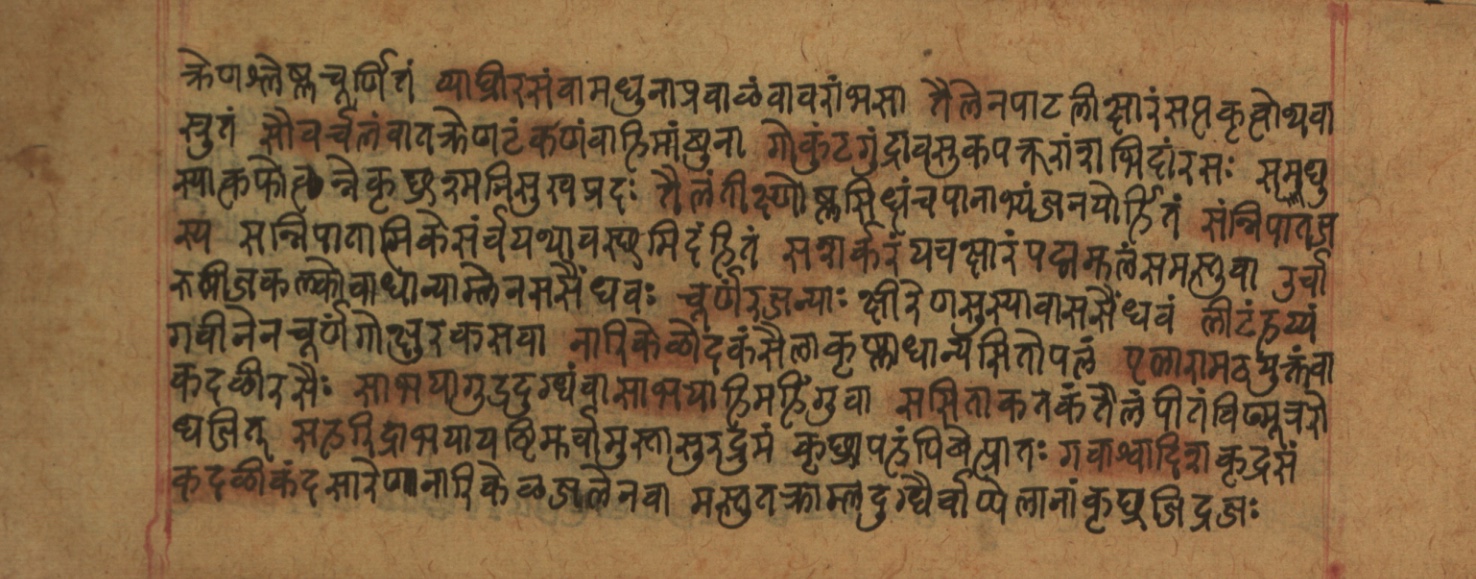 क्रेणश्लेष्मचूर्णितं व्याघ्रीरसंवामधुनाप्रवाळंवावरांभसा तैलेनपाटलीक्षारंसप्तकृत्वोथवा
स्त्रुतं सौवर्चलंवातक्रेणटंकणंवाहिमांबुना गोकुंटगुंद्रावसुकपत्तरांशाभिदांरसः समधु
स्यात्कफोत्पन्नेकृछ्ररमनिसुखप्रदः तैलंतीक्ष्णोष्णसिधंचपानाभ्यंजनयोर्हितं संन्निपातज
स्य सन्निपातात्मिकेसंर्वयथावस्थमिदंहितं सशर्करंयवक्षारंपद्माम्लंसमस्तुवा उर्वा
रुबीजकल्कोवाधान्याम्लेनससैंधवः चूर्णंरजन्याः क्षीरेणसुस्यावाससैंधवं लीटंहय्यं
गवीनेनचूर्णंगोक्षुरकसया नारिकेळोदकंसैलाकृष्णाधान्यसितोपलं एलारामठयुक्तंवा
कदळीरसैः साभयागुद्रदुग्धंवासाभयाहिमहिंगुवा ससिताकतकंतैलंपीतंविण्मूत्ररो
धजित् सहरिद्राभयायष्टिमूर्वामुस्तासुरद्रुमं कृछ्रापहंपिबेत्प्रातः गवाश्वादिशकृद्रसं
कदळीकंदसारेणनारिकेळजलेनवा मस्तुतक्राम्लदुग्धैर्वाप्येलानांकृछ्रजिद्रजः